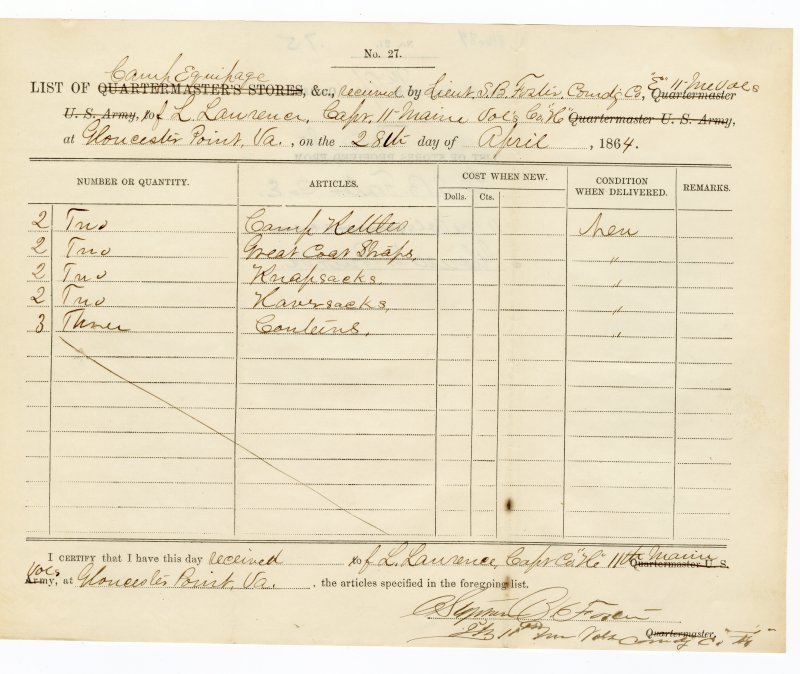 No. 27.
Camp Equipage
LIST OF QUARTERMASTER'S STORES, &c., received by Lieut. S. B. Foster, Comdg Co. 11 Me Vols Quartermaster
U. S. Army, to of L. Lawrence, Capt. 11 Maine Vols Co. "H" Quartermaster U. S. Army,
at Gloucester Point, Va. , on the 28th day of April , 1864.
NUMBER OR QUANTITY. ARTICLES. COST WHEN NEW. CONDITION WHEN DELIVERED. REMARKS.
Dolls. Cts.
2 Two Camp Kettles New
2 Two Great Coat Straps, "
2 Two Knapsacks. "
2 Two Haversacks, "
3 Three Conteins. "
I CERTIFY that I have this day received to of L. Lawrence, Capt Co. "H" 11th Maine Quartermaster U. S.
Vols Army, at Gloucester Point, Va. , the articles specified in the foregoing list.
B. Foster
Me Vols Comdg Co. Quartermaster,